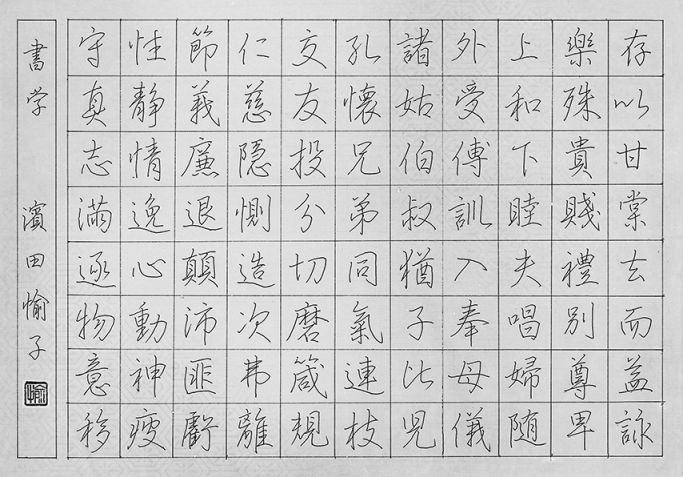 存以甘棠去而益詠
樂殊貴賤禮別尊卑
上和下睦夫唱婦随
外受傅訓入奉母儀
諸姑伯叔猶子比兒
孔懷兄弟同氣連枝
交友投分切磨箴規
仁慈隠惻造次弗離
節義廉退顛沛匪虧
性靜情逸心動神疲
守真志滿逐物意移
書学 濱田愉子
愉